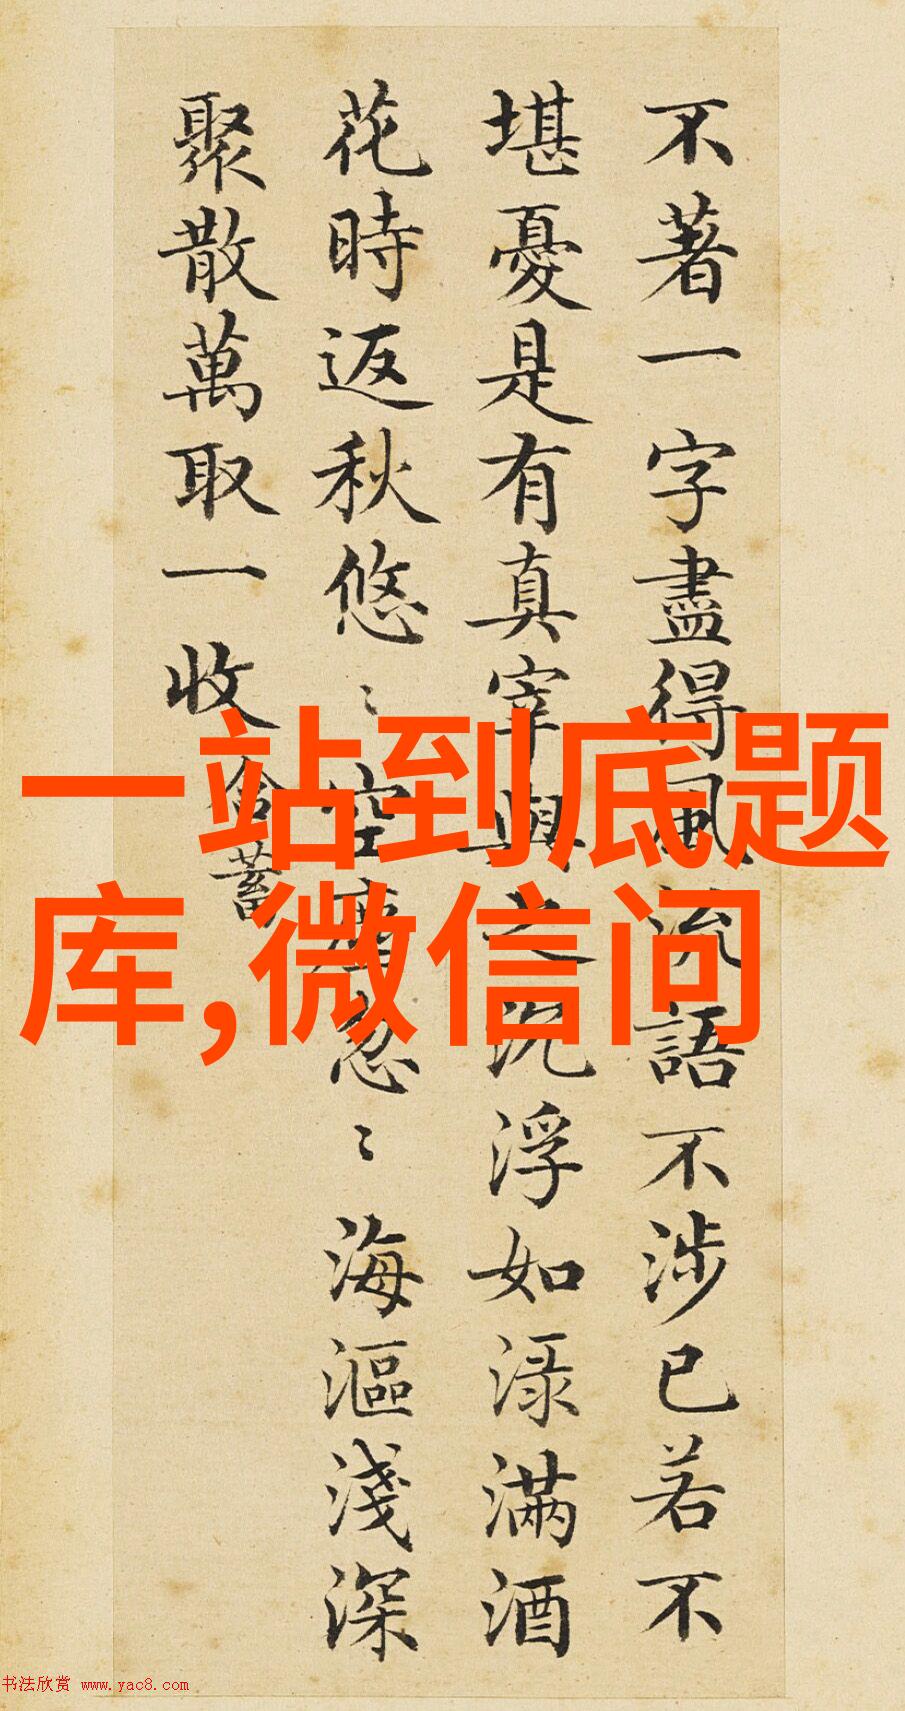 不著一字盡得風流語不涉已若不
堪憂是有真宰與之沉浮如渌滿酒
花時返秋悠〻空塵忽〻海漚淺深
聚散萬取一收 含蓄
一站到底题
库,微信问
书法欣赏 www.yac8.com